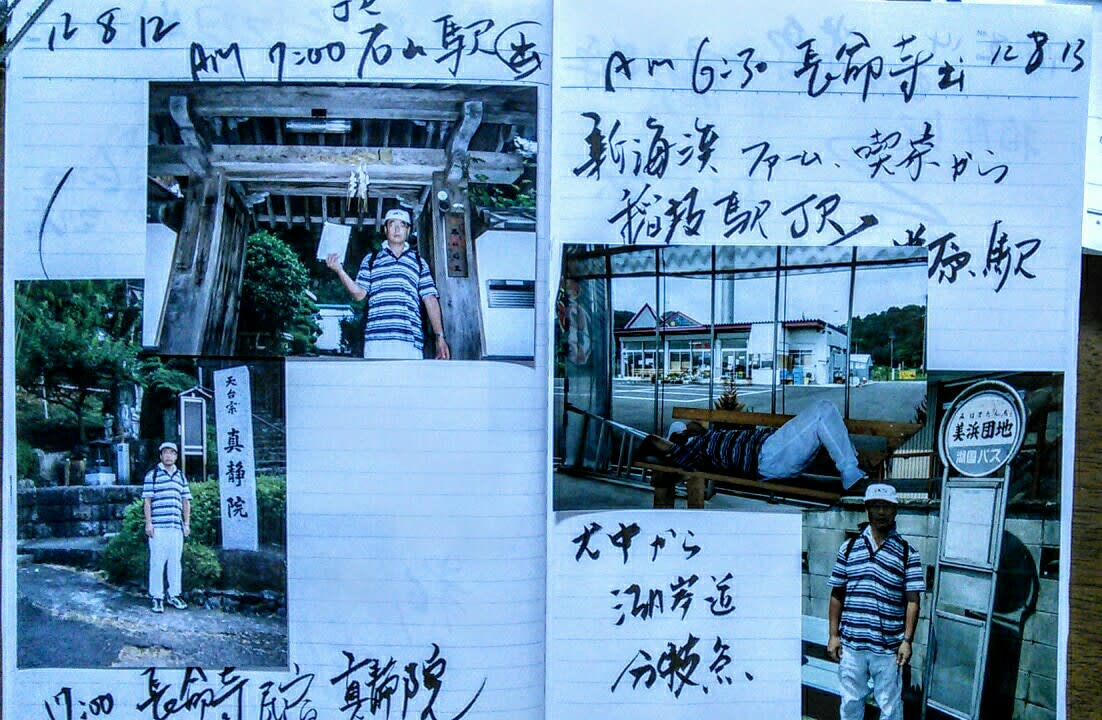 12 8 12
JR
Am 7:00 石山駅 出
天台宗 真静院
17:00 長命寺 宿 真静院
Am 6:30 長命寺出 12 8 13
新海浜 ファーム、喫茶から
稲枝駅 JR
原駅
美浜団地
湖国バス
犬中から
湖岸道
分岐点、